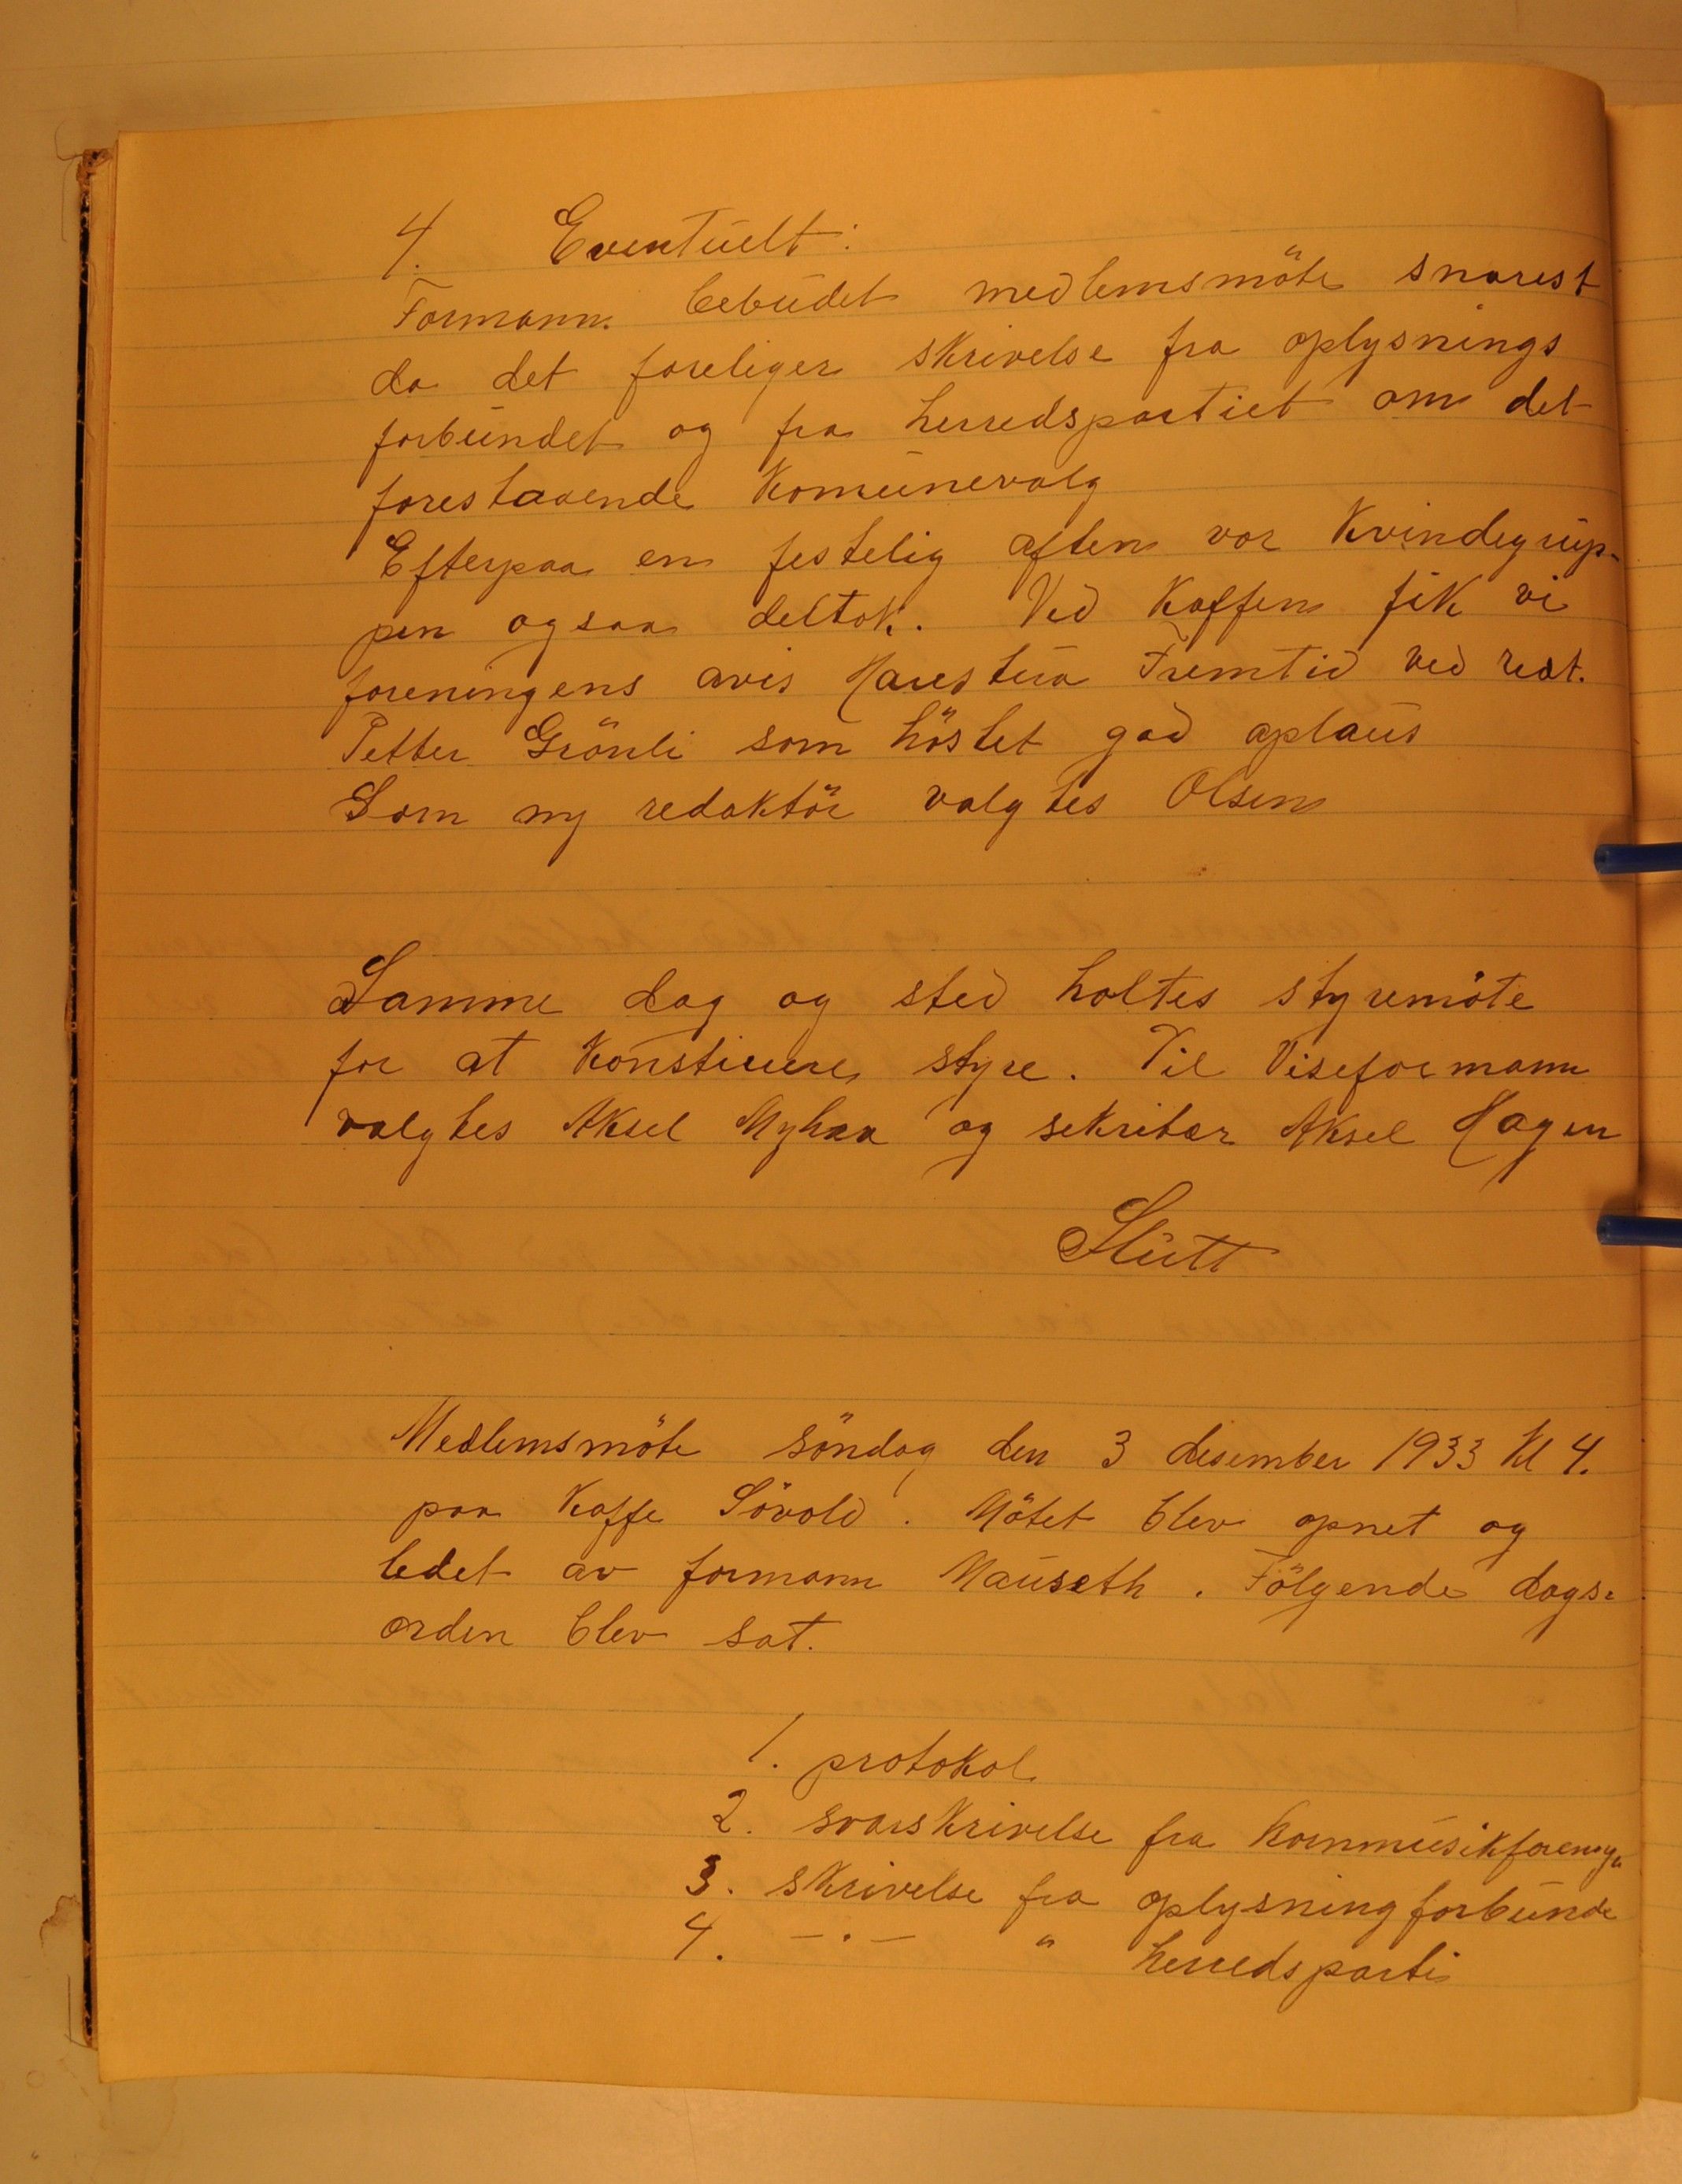 4. Eventuelt:
Formann. bebudet medlemsmöte snarest
da det foreliger skrivelse fra oplysnings
forbundet og fra herredspartiet om det
forestaaende Komunevalg
Efterpaa en festelig aften vor Kvindegrup-
pen ogsaa deltok. Ved Kaffen fik vi
foreningens avis Harestua Fremtid ved redt.
Petter Grönli som höstet god aplaus
Som ny redaktör valgtes Olsen
Samme dag og sted holtes styremöte
for at Konstiuere styre. Til Viseformann
valgtes Aksel Myhaa og sekritær Aksel Hagen
Slutt
Medlemsmöte söndag den 3 desember 1933 Kl 4.
paa Kaffe Sövold. Mötet blev opnet og
ledet av formann Mauseth. Fölgende dags-
orden blev sat.
1. protokol
2. svarskrivelse fra Kornmusikforeng.
3. skrivelse fra oplysningforbunde
4. -·- " herredsparti